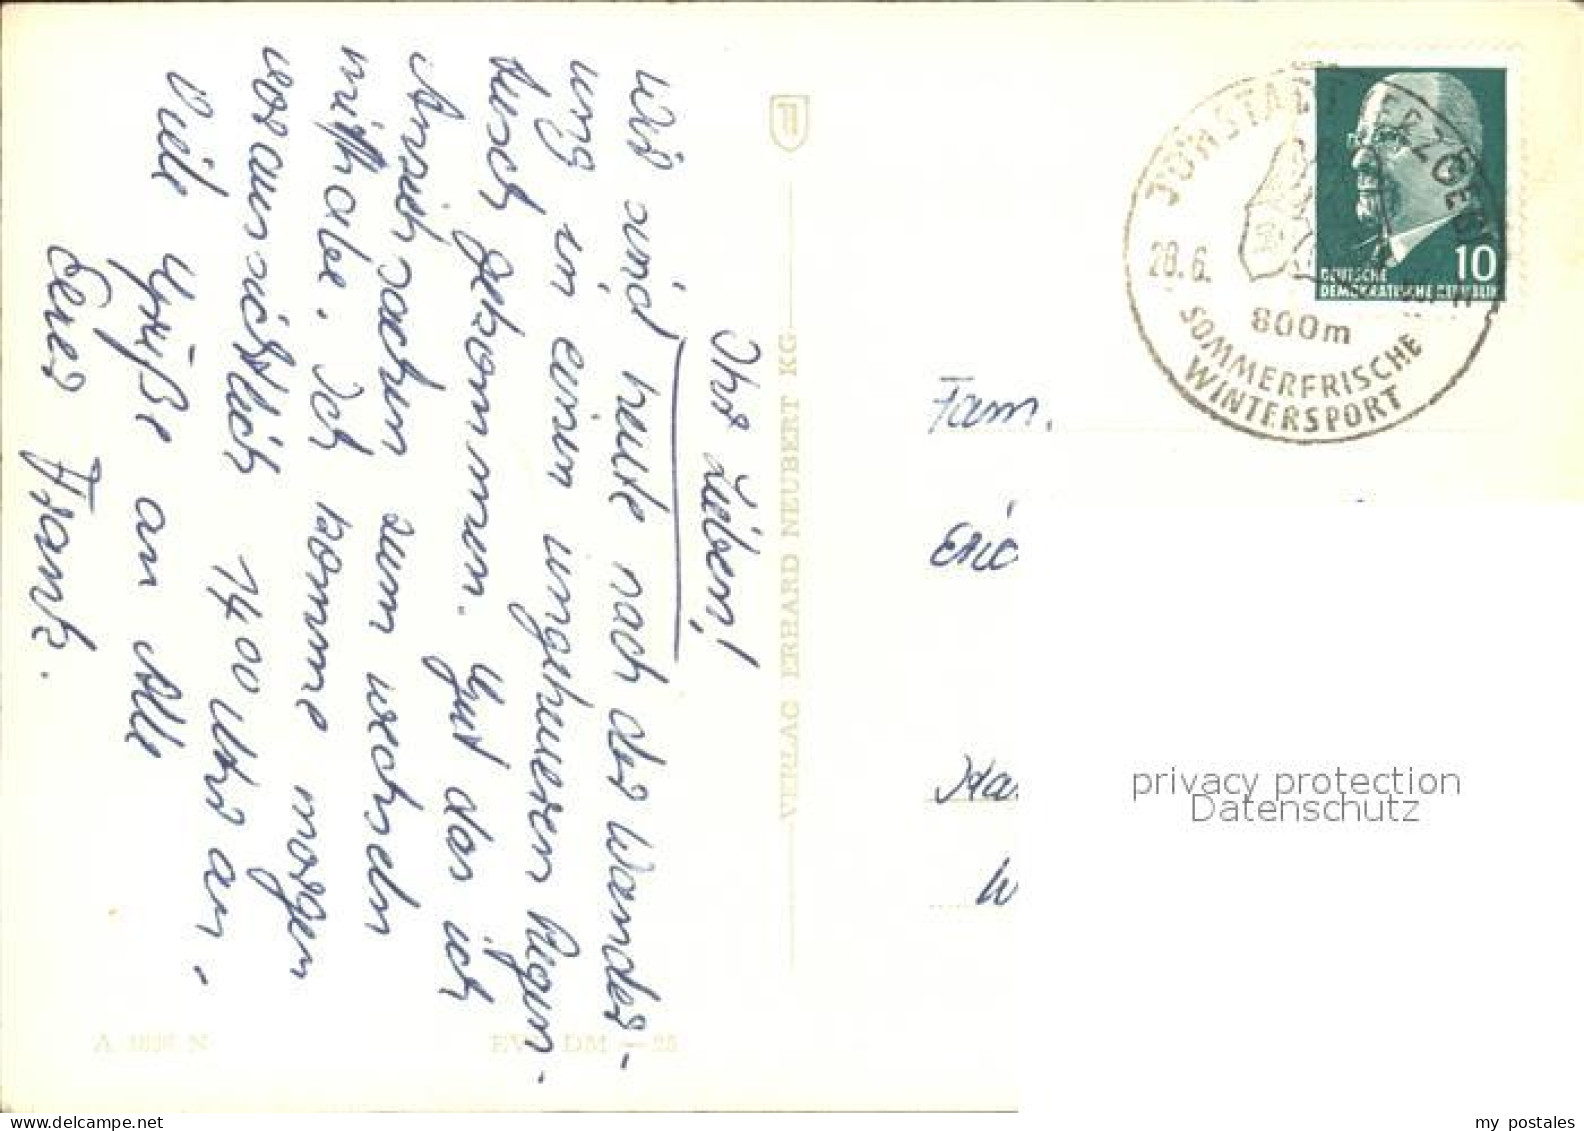 Ihr Lieben!
Wir sind heute nach der Wander-
ung in einen ungeheueren Regen-
tusch gekommen. Gut das ich
Anziehsachen zum wechseln
mithabe. Ich komme morgen
voraussichtlich 14.00 Uhr an.
Viele Grüße an Alle
Euer Frank.
VERLAG ERHARD NEUBERT KG
EVP DM —.25
JÖHSTADT ERZGEB.
28.6.
800m
SOMMERFRISCHE
WINTERSPORT
10
DEUTSCHE
DEMOKRATISCHE REPUBLIK
Fam.
privacy protection
Datenschutz
my postales